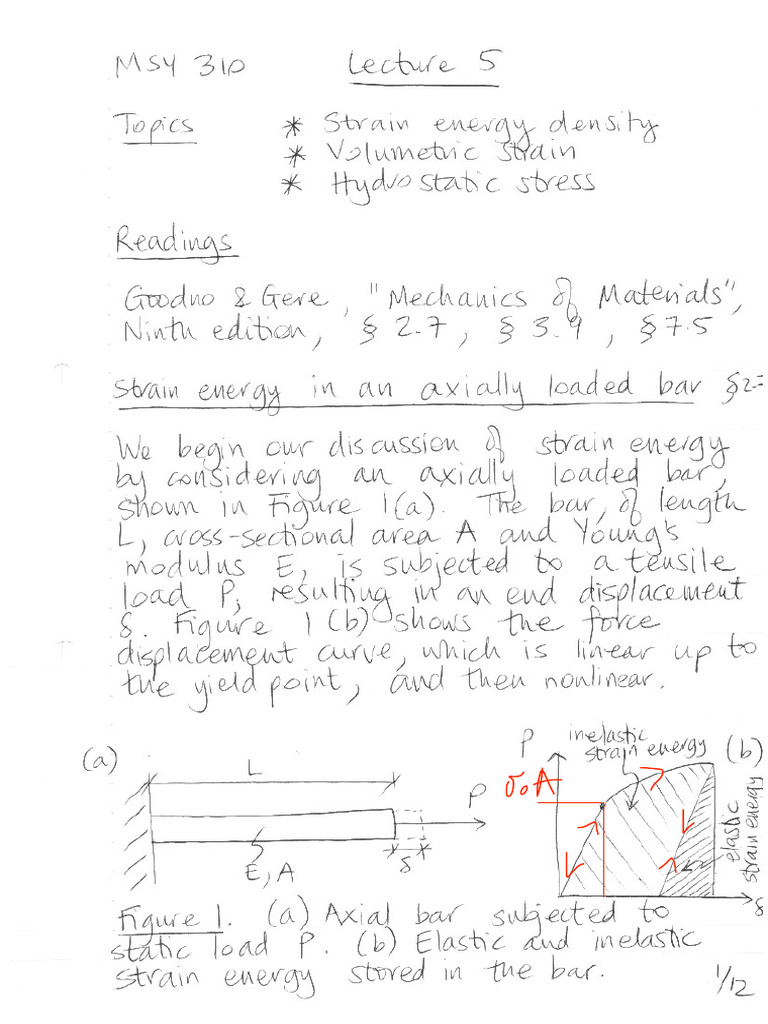 MSY 310 Lecture 5
Topics * Strain energy density
* Volumetric strain
* Hydrostatic stress
Readings
Goodno & Gere, "Mechanics of Materials",
Ninth edition, § 2.7, § 3.9, § 7.5
Strain energy in an axially loaded bar §2.7
We begin our discussion of strain energy
by considering an axially loaded bar,
shown in Figure 1(a). The bar, of length
L, cross-sectional area A and Young's
modulus E, is subjected to a tensile
load P, resulting in an end displacement
δ. Figure 1(b) shows the force
displacement curve, which is linear up to
the yield point, and then nonlinear.
(a)
L
P
δ
E, A
P
inelastic
strain energy
(b)
σ₀A
elastic
strain energy
δ
Figure 1. (a) Axial bar subjected to
static load P. (b) Elastic and inelastic
strain energy stored in the bar.
1/12